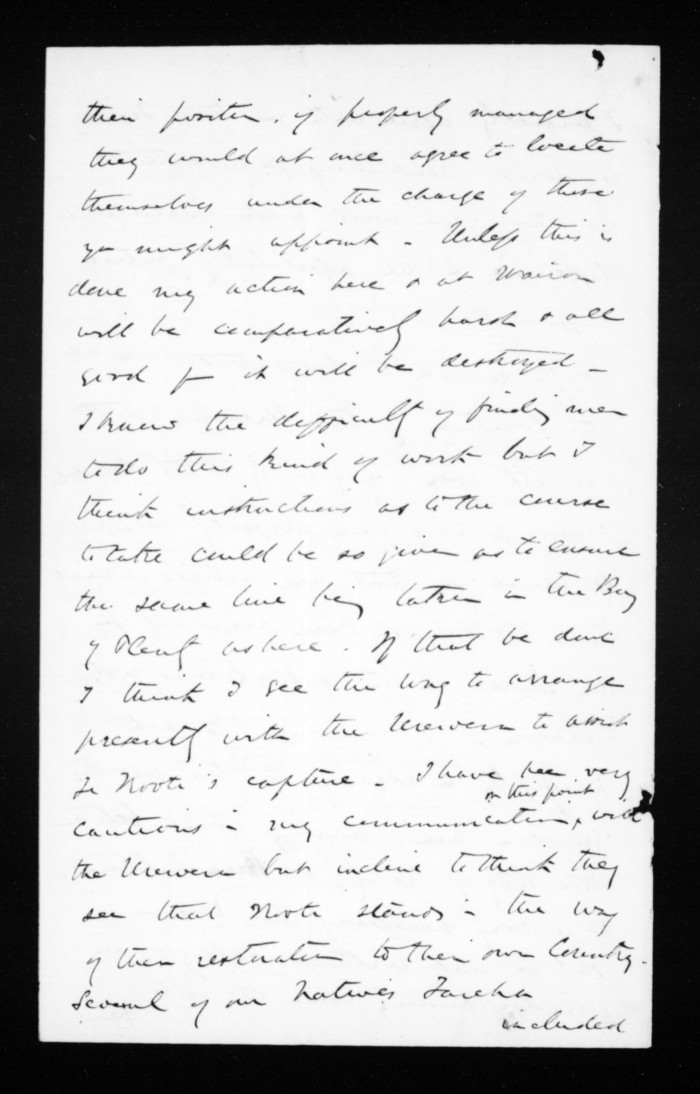 their position. if properly managed
they would at once agree to locate
themselves under the charge of those
you might appoint - Unless this is
done my action here & at Wairoa
will be comparatively harsh & all
good fr it will be destroyed -
I know the difficulty of finding men
to do this kind of work but I
think instructions as to the course
to take could be so given as to ensure
the same line being taken in the Bay
of Plenty as here. If that be done
I think I see the way to arrange
presently with the Urewera to assist
Te Kooti's capture - I have been very
on this point
cautious in my communication, with
the Urewera but incline to think they
see that Kooti stands in the way
of their restoration to their own Country -
Several of our Natives Tareha
included